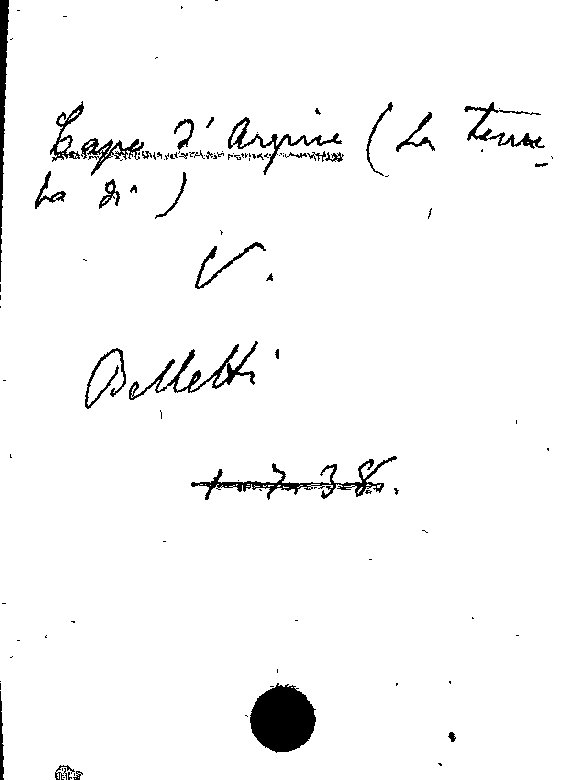 Capo d'Argine (La Tenu-
ta di)
V.
Belletti
1738.